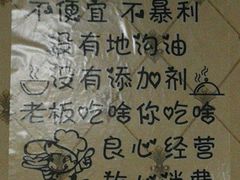 不便宜 不暴利
没有地沟油
没有添加剂
老板吃啥你吃啥
良心经营
放心消费